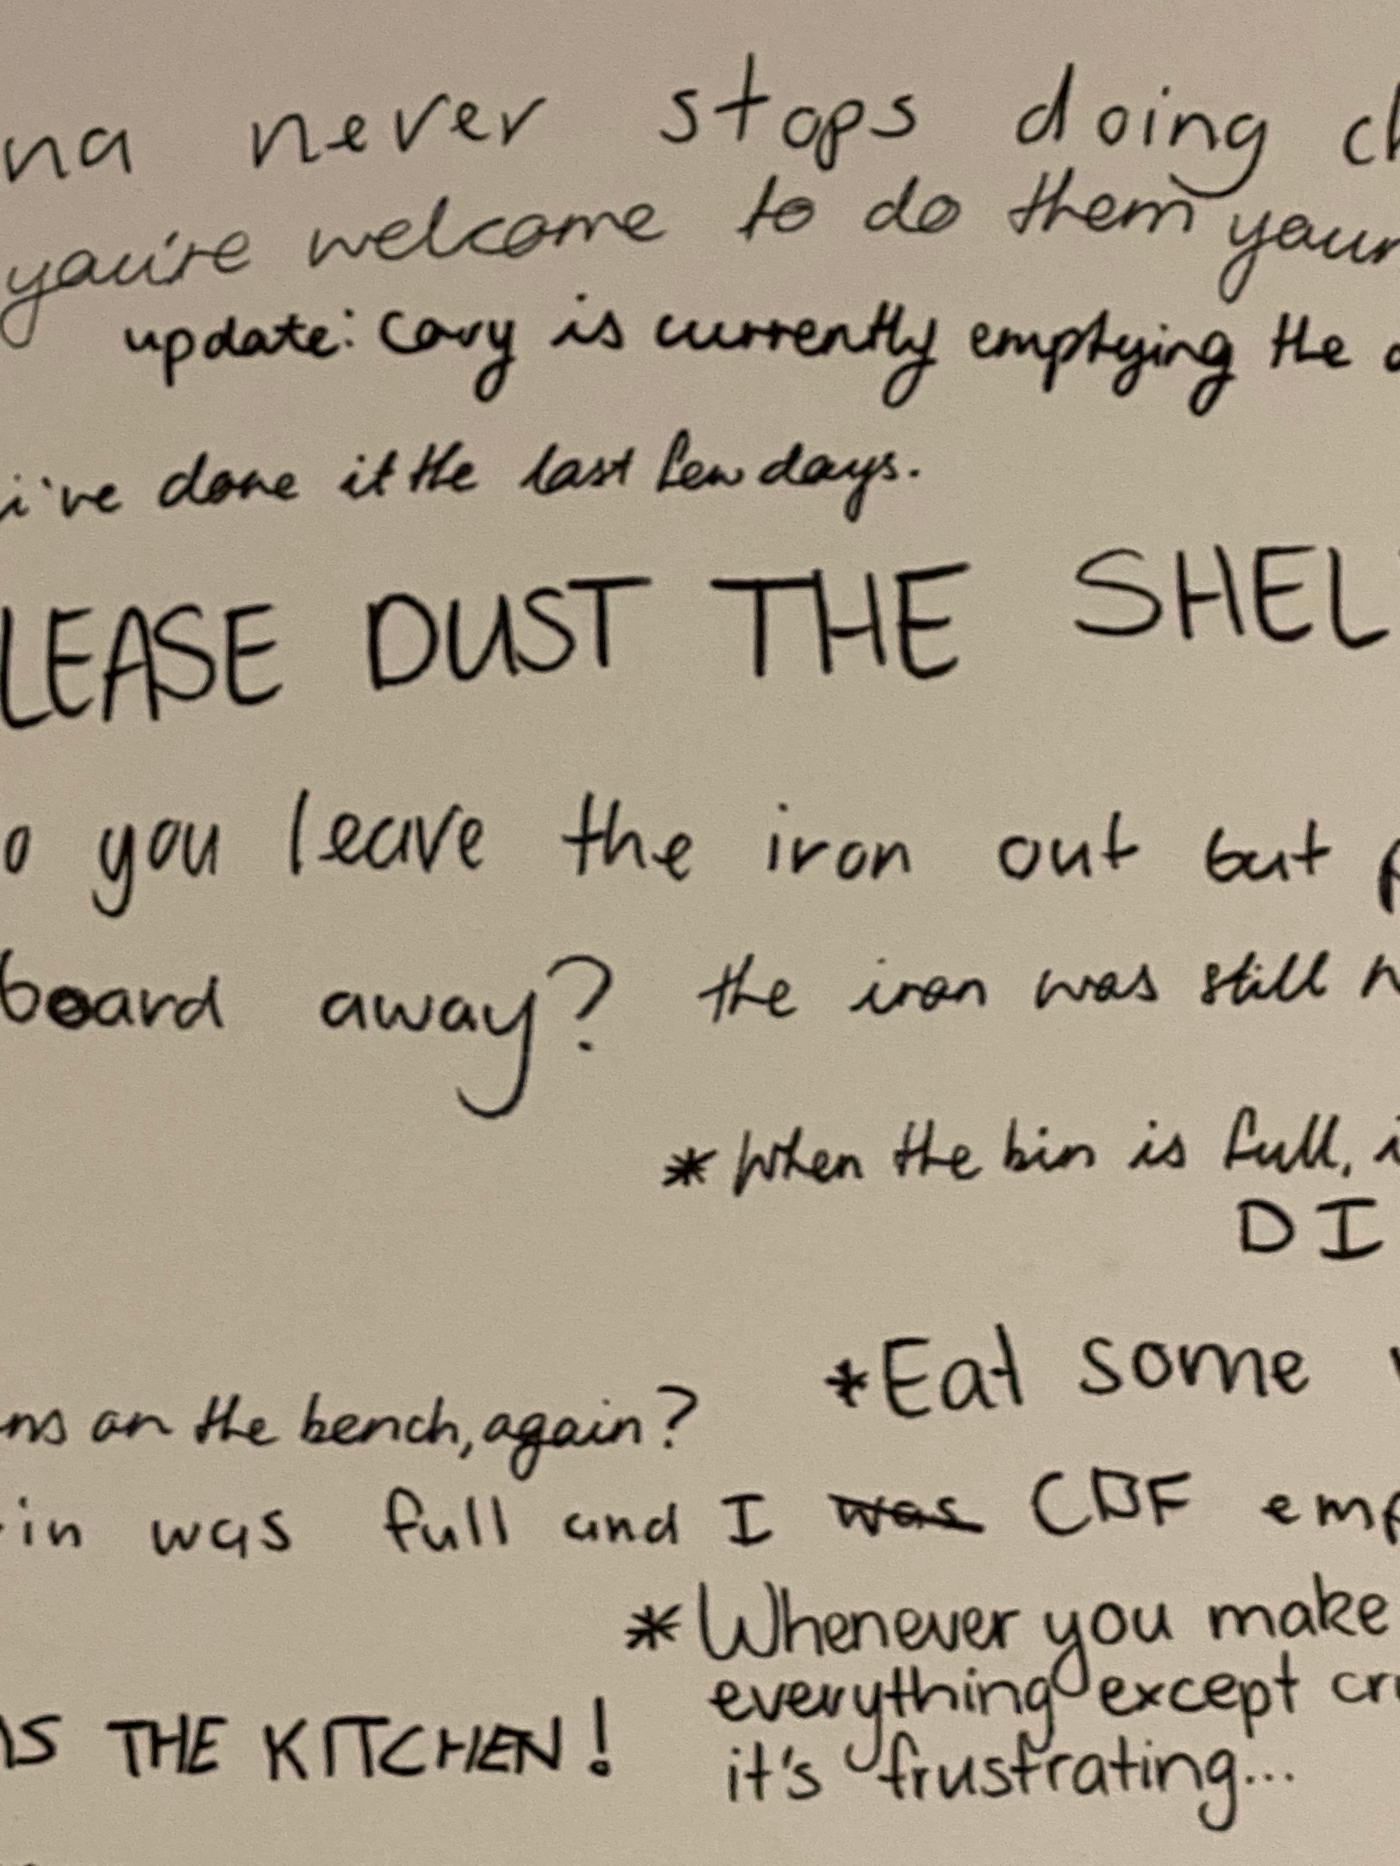 na never stops doing ch
you're welcome to do them your
update: Cary is currently emptying the d
i've done it the last few days.
LEASE DUST THE SHEL
o you leave the iron out but p
board away? the iron was still h
*When the bin is full, i
DI
*Eat some
ns on the bench, again?
in was full and I ~~was~~ CBF emp
*Whenever you make
everything except cr
it's frustrating...
AS THE KITCHEN!